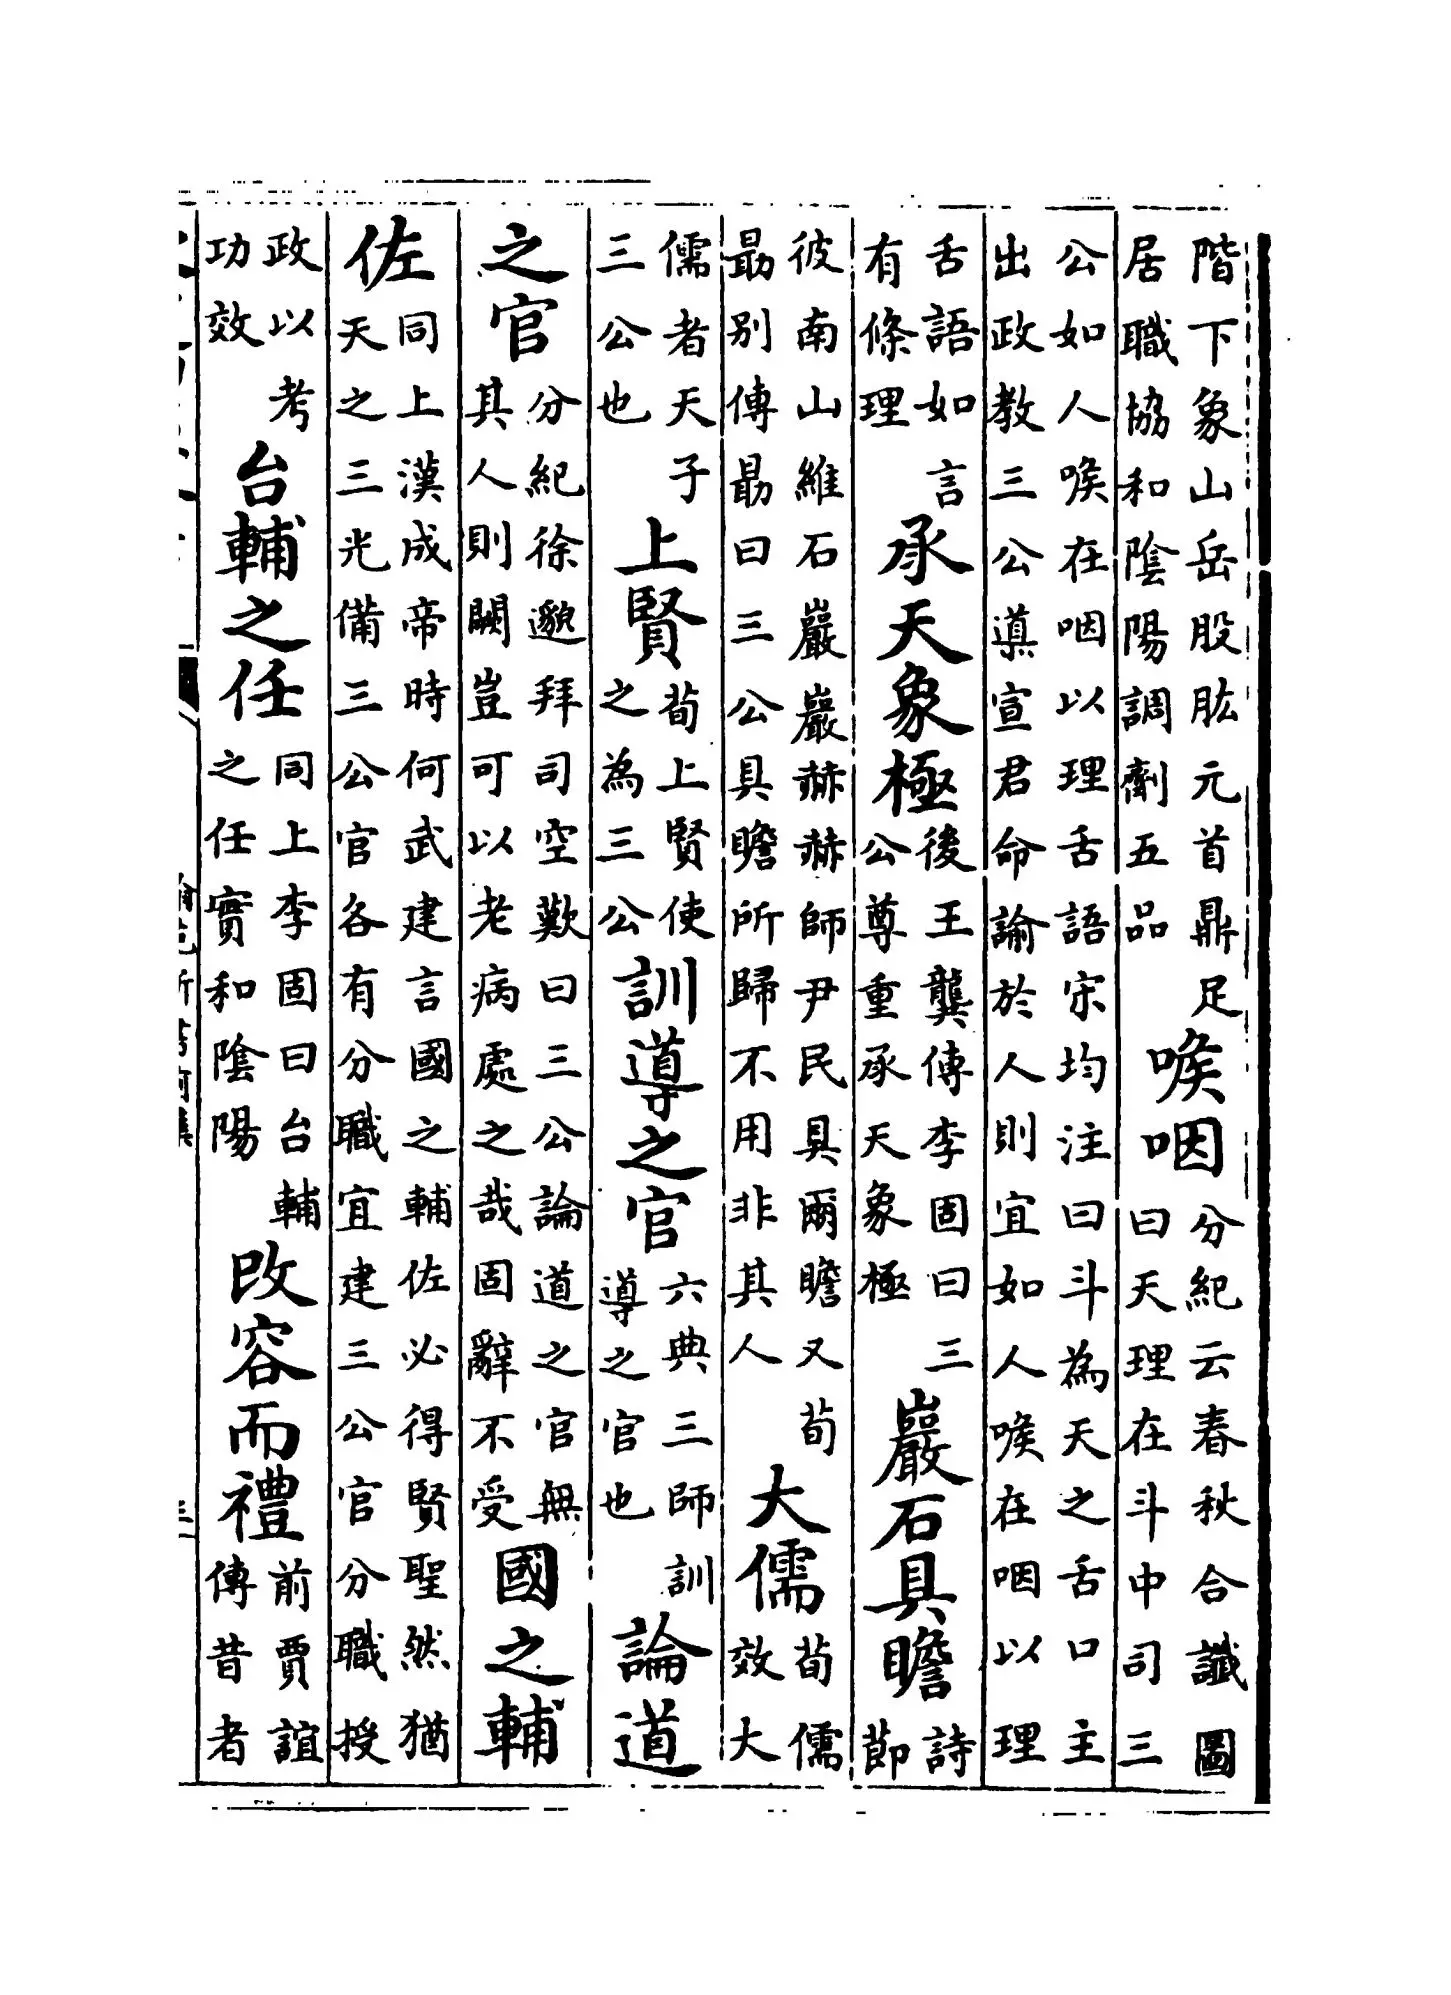 階下象山岳股肱元首鼎足
居職協和陰陽調劑五品
喉咽
分紀云春秋合讖圖
曰天理在斗中司三
公如人喉在咽以理舌語宋均注曰斗為天之舌口主
出政教三公導宣君命論於人則宜如人喉在咽以理
舌語如言
有條理
承天象極
後王龔傳李固曰三
公尊重承天象極
巖石具瞻
詩
節
彼南山維石巖巖赫赫師尹民具爾瞻又荀
勗別傳勗曰三公具瞻所歸不用非其人
大儒
荀儒
效大
儒者天子
三公也
上賢
荀上賢使
之為三公
訓導之官
六典三師訓
導之官也
論道
之官
分紀徐邈拜司空歎曰三公論道之官無
其人則闕豈可以老病處之哉固辭不受
國之輔
佐
同上漢成帝時何武建言國之輔佐必得賢聖然猶
天之三光備三公官各有分職宜建三公官分職授
政以考
功效
台輔之任
同上李固曰台輔
之任實和陰陽
改容而禮
前賈誼
傳昔者